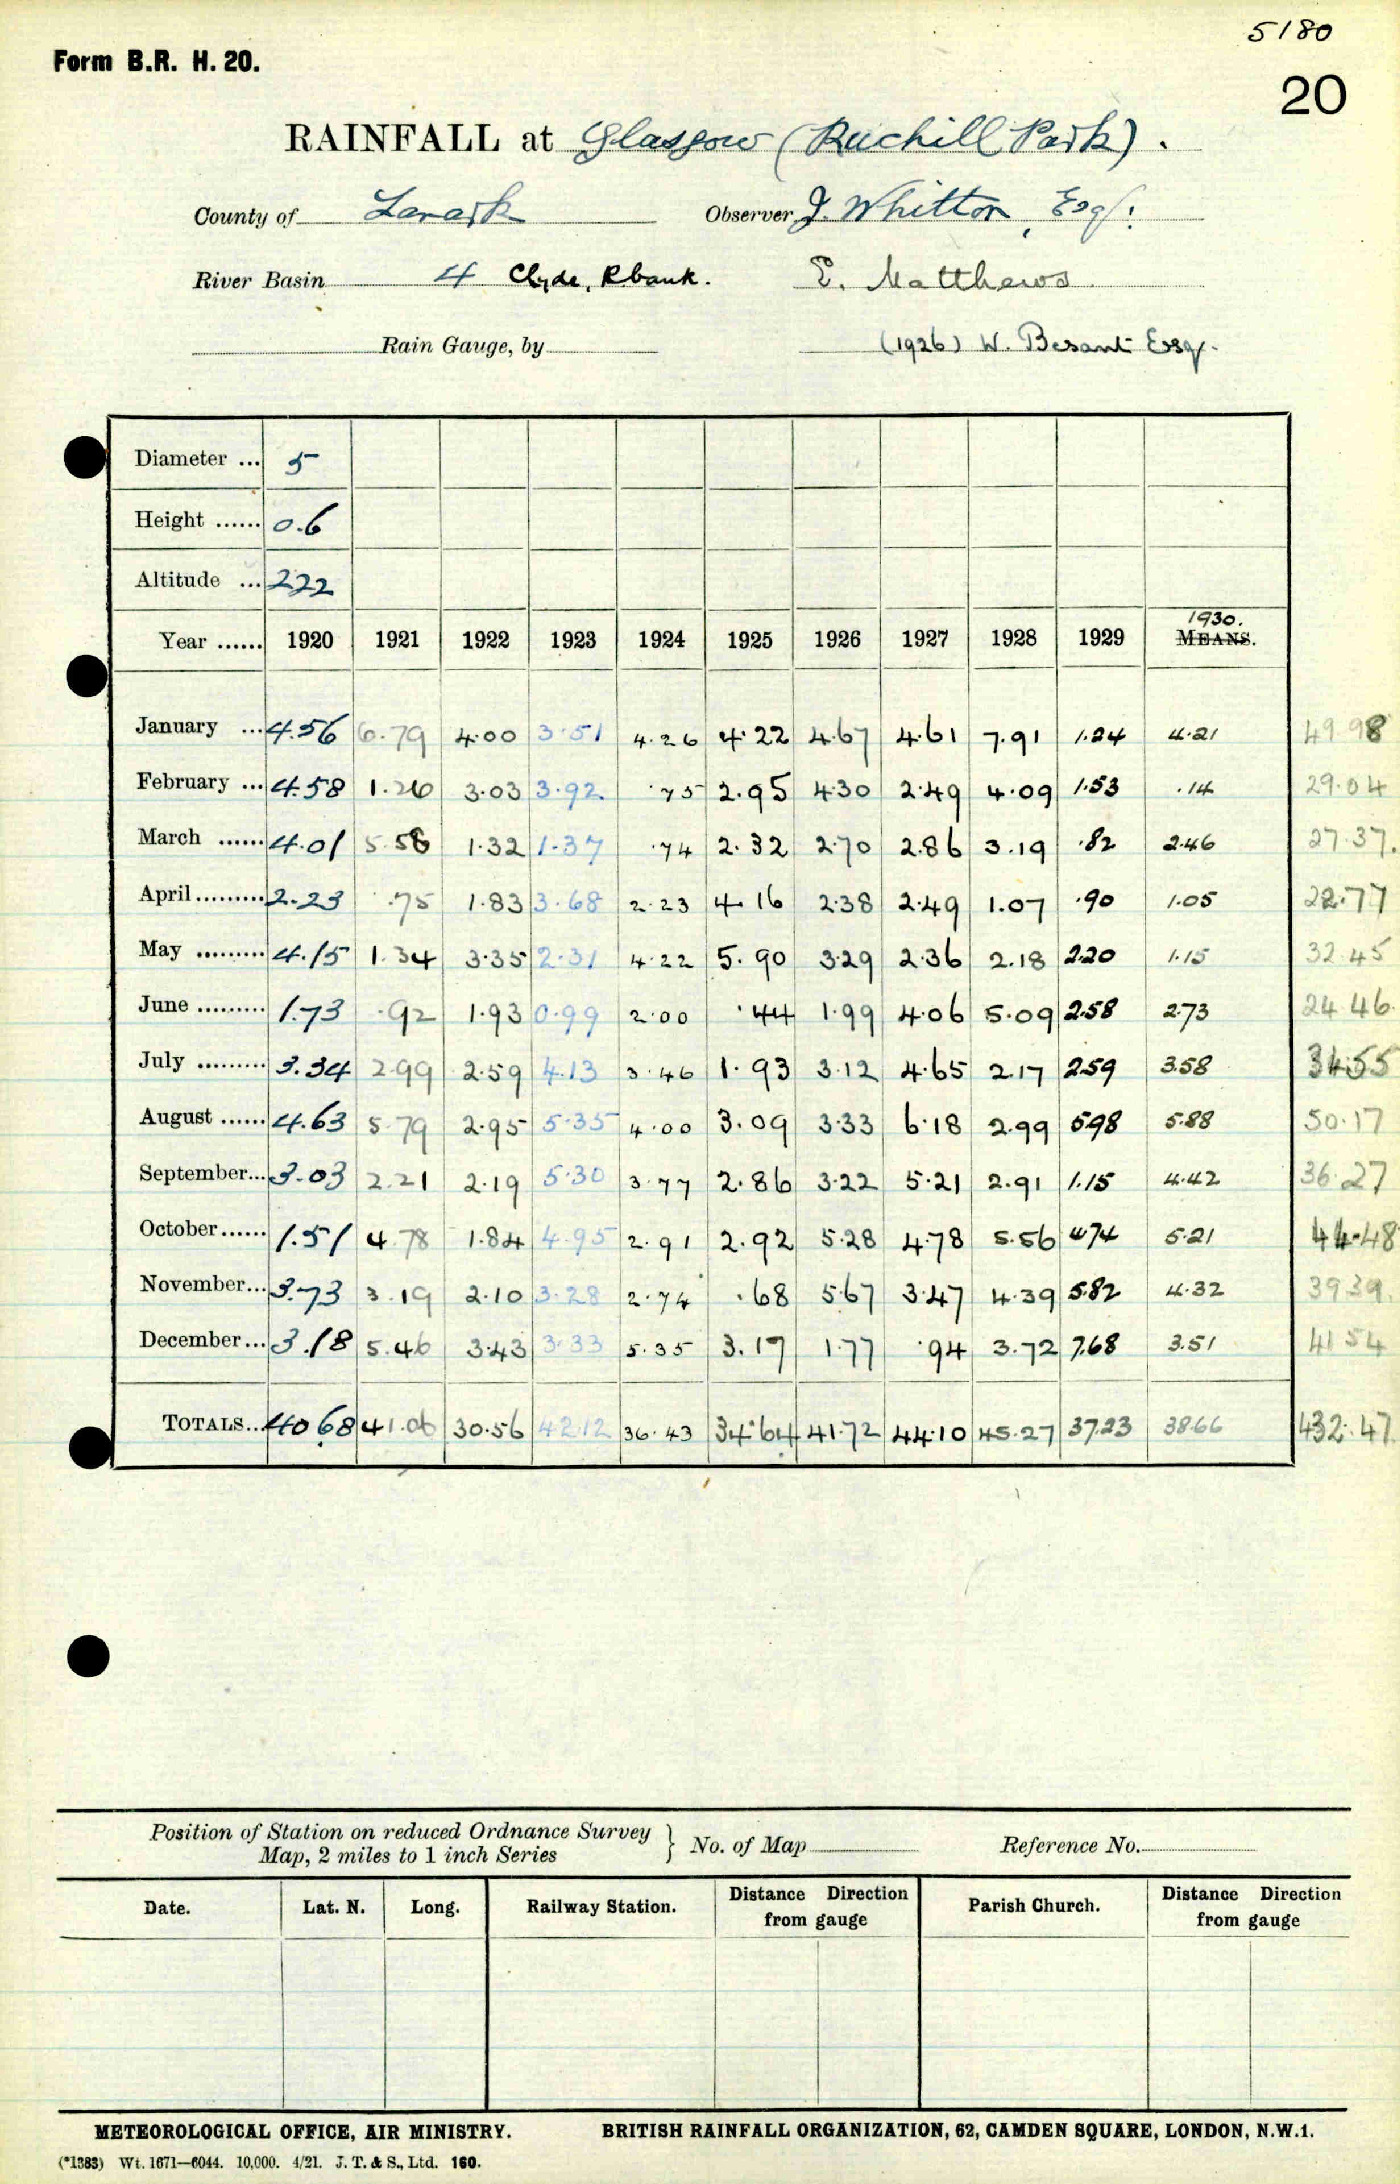 5180
Form B.R. H. 20.
20
RAINFALL at Glasgow (Ruchill Park).
County of Lanark Observer J. Whitton, Esq.
River Basin 4 Clyde, R bank. E. Matthews
Rain Gauge, by (1926) W. Besant Esq.
Diameter ... 5
Height ...... 0.6
Altitude ... 222
1930.
Year ...... 1920 1921 1922 1923 1924 1925 1926 1927 1928 1929 MEANS.
January ... 4.56 6.79 4.00 3.51 4.26 4.22 4.67 4.61 7.91 1.24 4.21 49.98
February ... 4.58 1.26 3.03 3.92 .75 2.95 4.30 2.49 4.09 1.53 .14 29.04
March ...... 4.01 5.58 1.32 1.37 .74 2.32 2.70 2.86 3.19 .82 2.46 27.37.
April ......... 2.23 .75 1.83 3.68 2.23 4.16 2.38 2.49 1.07 .90 1.05 22.77
May ......... 4.15 1.34 3.35 2.31 4.22 5.90 3.29 2.36 2.18 2.20 1.15 32.45
June ......... 1.73 .92 1.93 0.99 2.00 .44 1.99 4.06 5.09 2.58 2.73 24.46
July ......... 3.34 2.99 2.59 4.13 3.46 1.93 3.12 4.65 2.17 2.59 3.58 34.55
August ...... 4.63 5.79 2.95 5.35 4.00 3.09 3.33 6.18 2.99 5.98 5.88 50.17
September... 3.03 2.21 2.19 5.30 3.77 2.86 3.22 5.21 2.91 1.15 4.42 36.27
October...... 1.51 4.78 1.84 4.95 2.91 2.92 5.28 4.78 5.56 4.74 5.21 44.48
November... 3.73 3.19 2.10 3.28 2.74 .68 5.67 3.47 4.39 5.82 4.32 39.39
December... 3.18 5.46 3.43 3.33 5.35 3.17 1.77 .94 3.72 7.68 3.51 41.54
TOTALS... 40.68 41.06 30.56 42.12 36.43 34.64 41.72 44.10 45.27 37.23 38.66 432.47
Position of Station on reduced Ordnance Survey
Map, 2 miles to 1 inch Series } No. of Map Reference No.
Date. Lat. N. Long. Railway Station. Distance Direction from gauge Parish Church. Distance Direction from gauge
METEOROLOGICAL OFFICE, AIR MINISTRY. BRITISH RAINFALL ORGANIZATION, 62, CAMDEN SQUARE, LONDON, N.W.1.
(*1383) Wt. 1671—6044. 10,000. 4/21. J. T. & S., Ltd. 160.